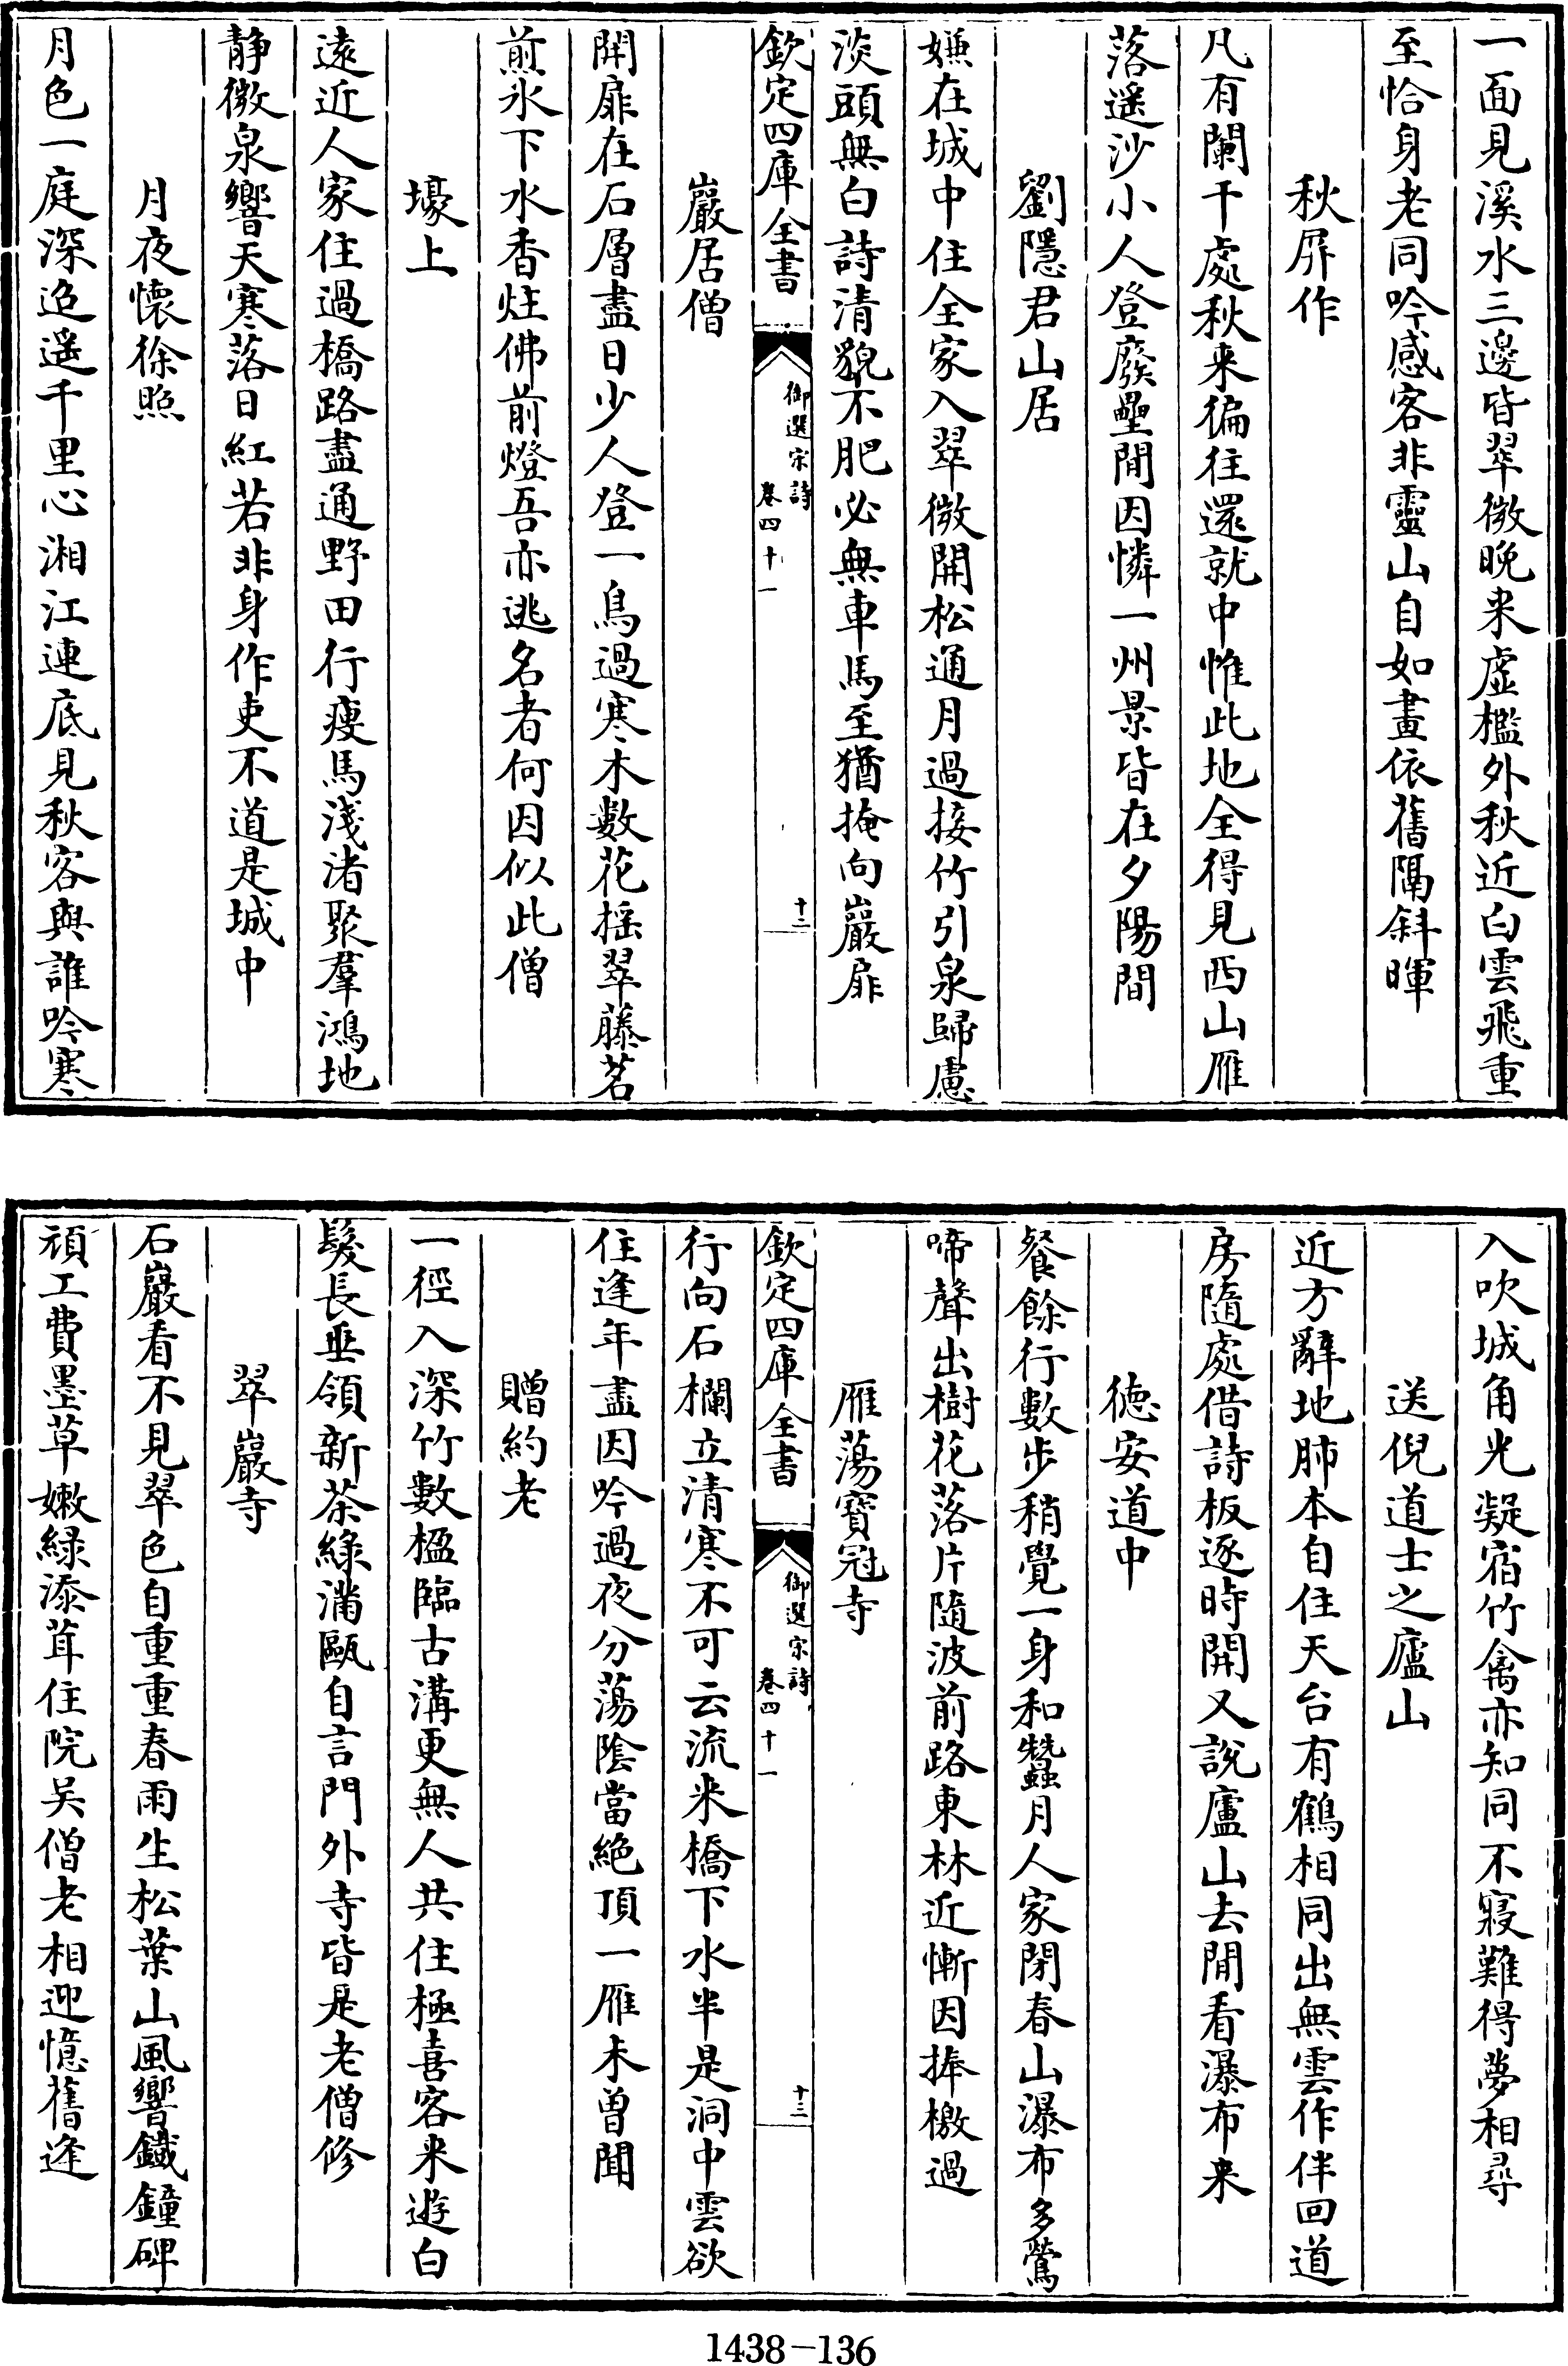 一面見溪水三邊皆翠微晚来虚檻外秋近白雲飛重
至恰身老同吟感客非靈山自如畫依舊隔斜暉
秋屛作
凡有闌干處秋来徧往還就中惟此地全得見西山雁
落遥沙小人登廢壘閒因憐一州景皆在夕陽間
劉隱君山居
嫌在城中住全家入翠微開松通月過接竹引泉歸慮
淡頭無白詩清貌不肥必無車馬至猶掩向巖扉
欽定四庫全書
御選宋詩
卷四十一
十二
巖居僧
開扉在石層盡日少人登一鳥過寒木數花摇翠藤茗
煎氷下水香炷佛前燈吾亦逃名者何因似此僧
壕上
遠近人家住過橋路盡通野田行瘦馬淺渚聚羣鴻地
静微泉響天寒落日紅若非身作吏不道是城中
月夜懷徐照
月色一庭深迢遥千里心湘江連底見秋客與誰吟寒
入吹城角光凝宿竹禽亦知同不寢難得夢相尋
送倪道士之廬山
近方辭地肺本自住天台有鶴相同出無雲作伴回道
房隨處借詩板逐時開又說廬山去閒看瀑布来
德安道中
餐餘行數步稍覺一身和蠶月人家閉春山瀑布多鶯
啼聲出樹花落片隨波前路東林近慚因捧檄過
雁蕩寶冠寺
欽定四庫全書
御選宋詩
卷四十一
十三
行向石欄立清寒不可云流来橋下水半是洞中雲欲
住逢年盡因吟過夜分蕩陰當絶頂一雁未曽聞
贈約老
一徑入深竹數楹臨古溝更無人共住極喜客来遊白
髮長垂領新茶綠滿甌自言門外寺皆是老僧修
翠巖寺
石巖看不見翠色自重重春雨生松葉山風響鐵鐘碑
頑工費墨草嫩綠添茸住院吴僧老相迎憶舊逢
1438-136